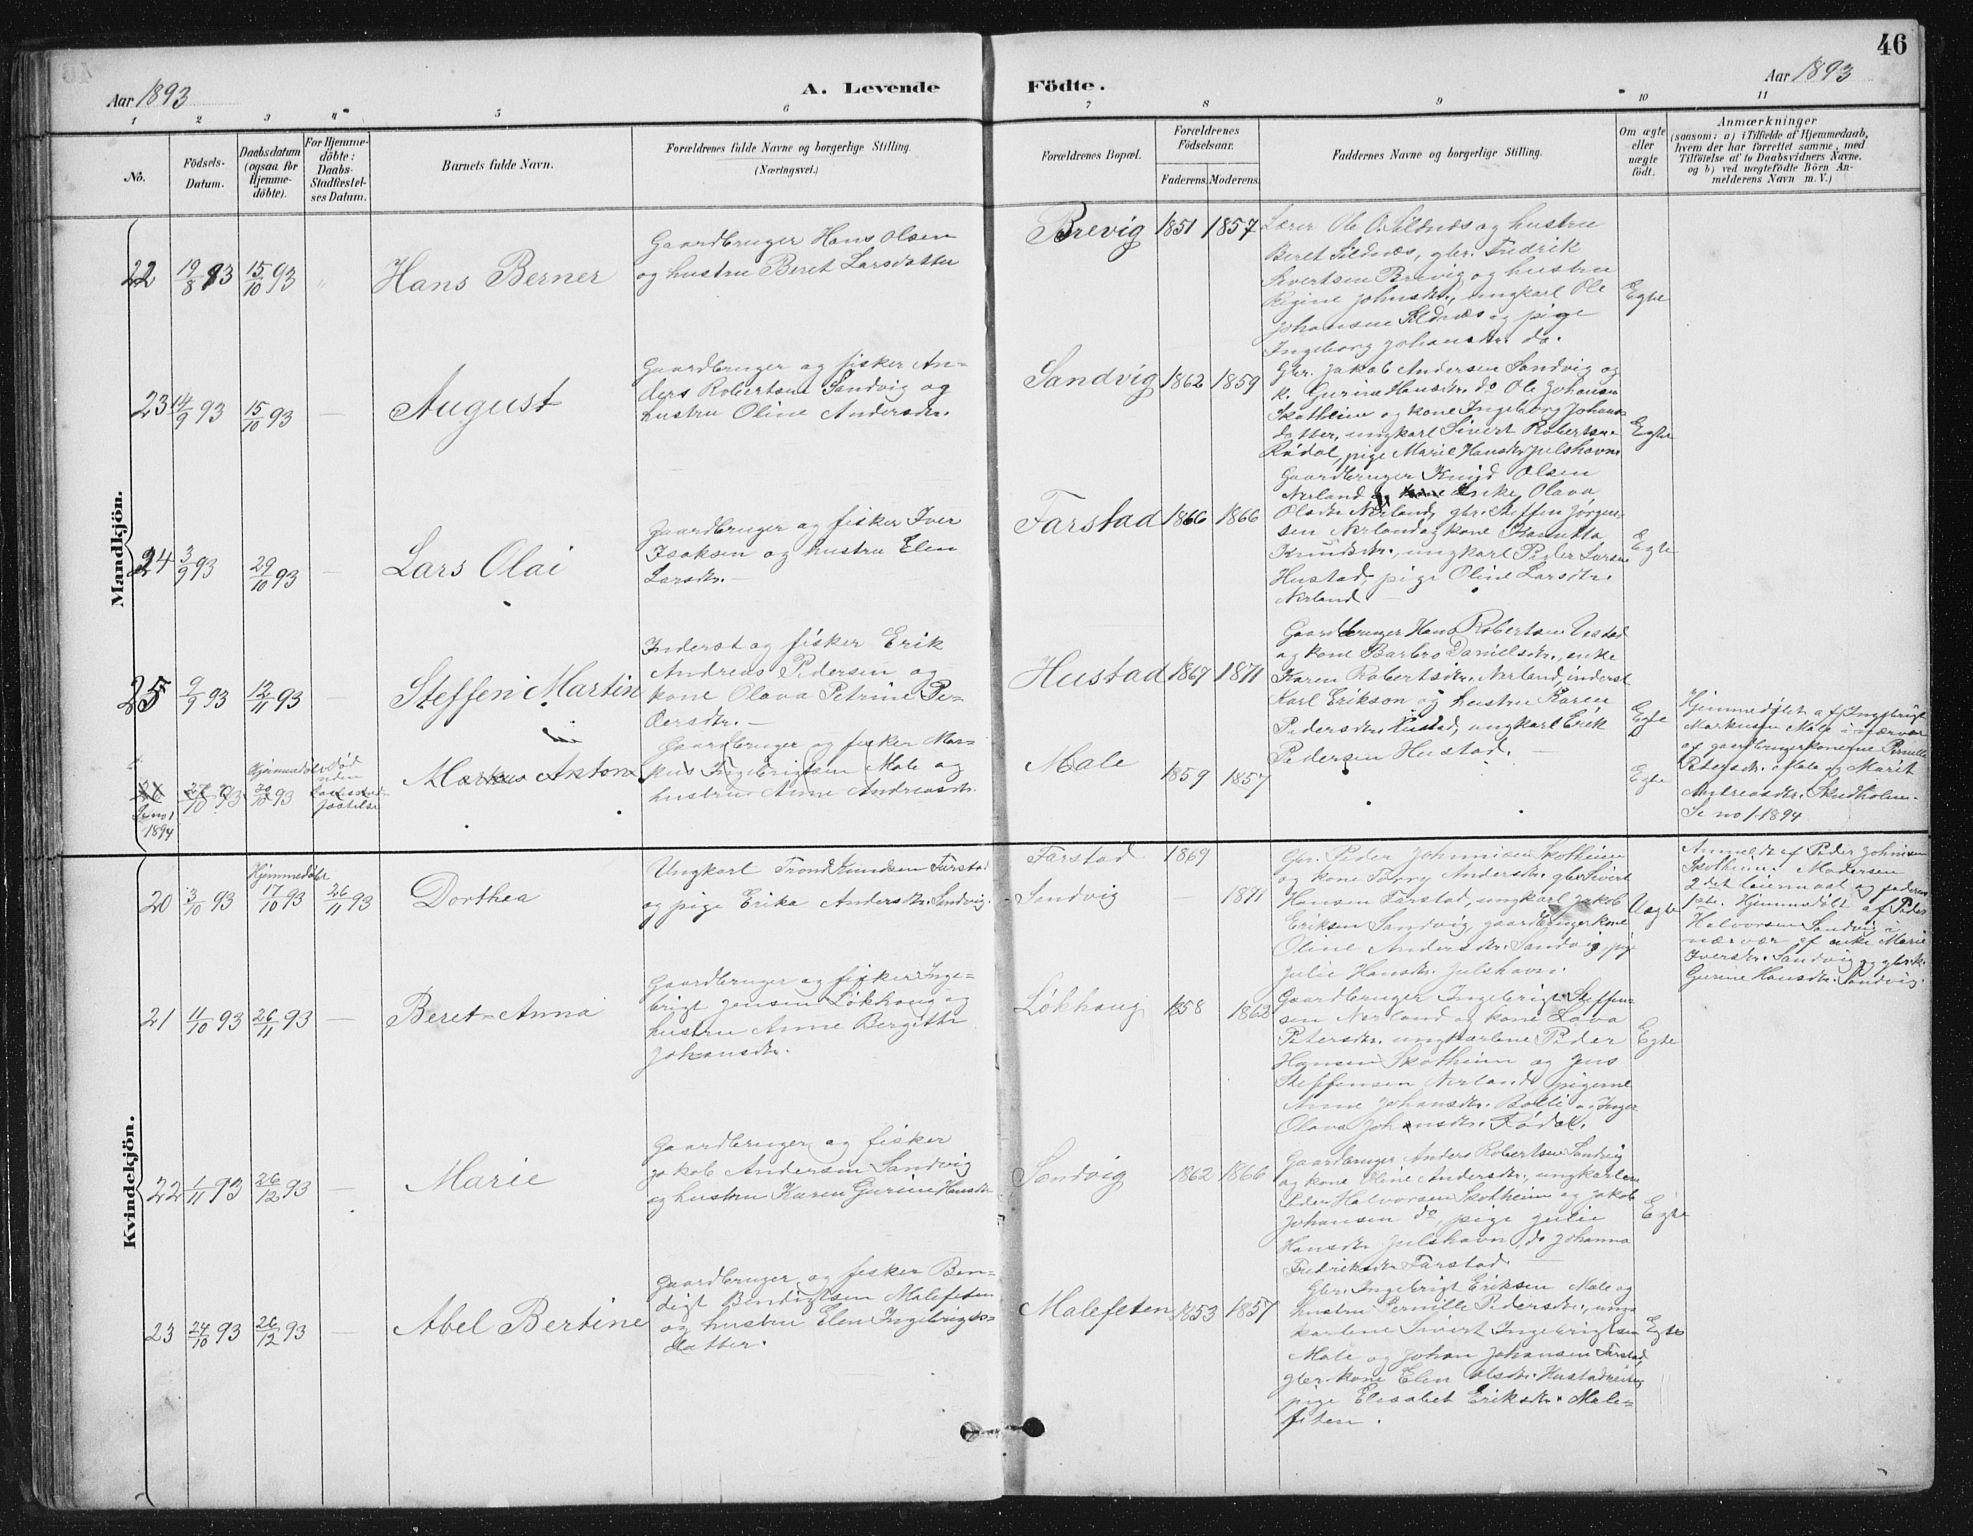 46
Aar 1893
A. Levende Födte.
Aar 1893
1 2 3 4 5 6 7 8 9 10 11
No.
Födsels-Datum.
Daabsdatum (ogsaa for Hjemme-döbte).
For Hjemme-döbte: Daabs-Stadfæstel-ses Datum.
Barnets fulde Navn.
Forældrenes fulde Navne og borgerlige Stilling.
(Næringsvei.)
Forældrenes Bopæl.
Forældrenes Födselsaar.
Faderens. Moderens.
Faddernes Navne og borgerlige Stilling.
Om ægte eller uægte födt.
Anmærkninger
(saasom: a) i Tilfælde af Hjemmedaab,
hvem der har forrettet samme, med
Tilföielse af to Daabsvidners Navne,
og b) ved uægtefödte Börn An-
melderens Navn m. V.)
Mandkjön.
22 19/8 93 15/10 93 "
Hans Berner
Gaardbruger Hans Olsen
og hustru Beret Larsdatter
Brevig 1851 1857
Lærer Ole O. Sildnæs og hustru
Beret Sildnæs, gbr. Fredrik
Sivertsen Brevig og hustru
Regine Johnsdtr., ungkarl Ole
Johansen Sildnæs og pige
Ingeborg Johansdtr. do.
Egte
23 14/9 93 15/10 93 —
August
Gaardbruger og fisker An-
ders Robertsen Sandvig og
hustru Oline Andersdtr.
Sandvig 1862 1859
Gbr. Jakob Andersen Sandvig og
k. Gurine Hansdtr. do Ole Johansen
Skotheim og kone Ingeborg Johans-
datter, ungkarl Sivert Robertsen
Rødal, pige Marie Hansdtr Julshavn
Egte
24 3/9 93 29/10 93 —
Lars Olai
Gaardbruger og fisker Iver
Isaksen og hustru Elen
Larsdtr. —
Farstad 1866 1866
Gaardbruger Knud Olsen
Nerland enke Olava
Olsdtr Nerland, gbr. Steffen Jørgen-
sen Nerland og kone
Knudsdtr., ungkarl Peder Larsen
Hustad, pige Oline Larsdtr.
Nerland
Egte
25 9/9 93 12/11 93 —
Steffen Martin
Inderst og fisker Erik
Andreas Pedersen og
kone Olava Petrine Pe-
dersdtr. —
Hustad 1867 1871
Gaardbruger Hans Robertsen Vestad
og kone Barbro Danielsdtr., enke
Karen Robertsdtr. Nerland, inderst
Karl Erikson og hustru Karen
Pedersdtr Hustad, ungkarl Erik
Pedersen Hustad. —
Egte
26 27/10 93 Hjemmedøbt 29/10 93 Død inden
Se no 1 1894
Markus Anton
Gaardbruger og fisker Mar-
kus Ingebrigtsen Male og
hustru Anne Andreasdtr.
Male 1859 1857
Egte
Hjemmedøbt af Ingebrigt
Markussen Male i nærvær
af gaardbrugerkonerne Pernille
Pedersdtr. Male og Marit
Andreasdtr. Skudholm.
Se no 1-1894
Kvindekjön.
20 3/10 93 Hjemmedøbt 17/10 93 26/11 93
Dorthea
Ungkarl Trond Knudsen Farstad
og pige Erika Andersdtr. Sandvig.
Farstad 1869
Sandvig — 1871
Gbr. Peder Johnnisen Skotheim
og kone Andersdtr. gbr Sivert
Hansen Farstad, ungkarl Jakob
Eriksen Sandvig, gaardbrugerkone
Oline Andersdtr. Sandvig, pige
Julie Hansdtr. Julshavn.
Uægte
Anmeldt af Peder Johnisen
Skotheim. Moderen
2det leiermaal og faderen
1ste. Hjemmedøbt af Peder
Halvorsen Sandvig i
nærvær af enke Marie
Iversdtr. Sandvig og gbr.k.
Gurine Hansdtr. Sandvig.
21 11/10 93 26/11 93 —
Beret Anna
Gaardbruger og fisker Inge-
brigt Jensen Løkhaug og
hustru Anne Bergitte
Johansdtr.
Løkhaug 1858 1862
Gaardbruger Ingebrigt Steffen-
sen Nerland og kone Lava
Petersdtr. ungkarlene Peder
Hansen Skotheim og Jens
Steffensen Nerland, pigerne
Anne Johansdtr. Bolli og Inger
Olava Johansdtr. Rødal.
Egte
22 1/11 93 26/12 93 —
Marie
Gaardbruger og fisker
Jakob Andersen Sandvig
og hustru Karen Gurine Hansdtr
Sandvig 1862 1866
Gaardbruger Anders Robertsen Sandvig
og kone Oline Andersdtr., ungkarlene
Peder Halvorsen Skotheim og Jakob
Johansen do, pige Julie
Hansdtr Julshavn, do Johanna
Fredriksdtr Farstad. —
Egte
23 24/10 93 26/12 93 —
Abel Bertine
Gaardbruger og fisker Ben-
digt Bendigtsen Malefeten
og hustru Elen Ingebrigts-
datter.
Malefeten 1853 1857
Gbr. Ingebrigt Eriksen Male og
hustru Pernille Pedersdtr., ung-
karlene Sivert Ingebrigtsen
Male og Johan Johansen Farstad,
gbr. kone Elen Olsdtr. Hustad
pige Elisabet Eriksdtr. Male-
feten.
Egte